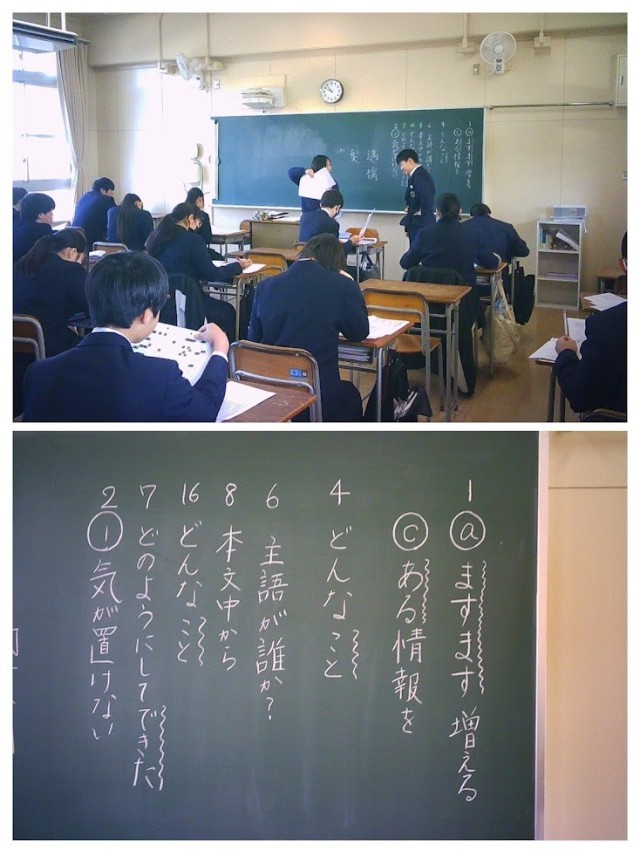 1 ⓐ ますます 増える
ⓒ ある情報を
4 どんなこと
6 主語が誰か?
8 本文中から
16 どんなこと
7 どのようにしてできた
2 ① 気が置けない